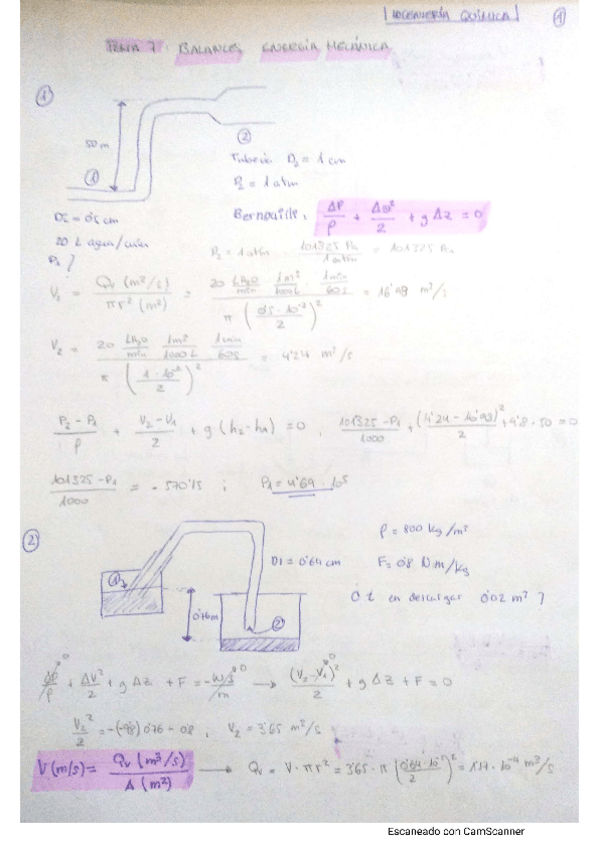 INGENIERÍA QUÍMICA 1
TEMA 7: BALANCES ENERGÍA MECÁNICA
1
50 m
1
2
Tubería D2 = 1 cm
P2 = 1 atm
DI = 0'5 cm
Bernouilli: ΔP/ρ + Δv²/2 + gΔz = 0
20 L agua/min
P1 ?
P2 = 1 atm · 101325 Pa/1 atm = 101325 Pa
V1 = Qv (m³/s)/πr² (m²) = 20 LH2O/min · 1m³/1000L · 1min/60s / π (0'5·10⁻²/2)² = 16'98 m³/s
V2 = 20 LH2O/min · 1m³/1000L · 1min/60s / π (1·10⁻²/2)² = 4'24 m³/s
P2 - P1/ρ + V2 - V1/2 + g (h2 - h1) = 0 , 101325 - P1/1000 + (4'24 - 16'98)²/2 + 9'8 · 50 = 0
101325 - P1/1000 = - 570'15 ; P1 = 4'69 · 10⁵
2
1
DI = 0'64 cm
0'76m
2
ρ = 800 kg/m³
F = 0'8 N·m/kg
¿ t en descargar 0'02 m³ ?
ΔP/ρ 0 + Δv²/2 + gΔz + F = -Ws/m 0 → (V2 - V1 0)²/2 + gΔz + F = 0
V2²/2 = -(-9'8) 0'76 - 0'8 ; V2 = 3'65 m³/s
V (m/s) = Qv (m³/s)/A (m²) → Qv = V · πr² = 3'65 · π (0'64·10⁻²/2)² = 1'17 · 10⁻⁴ m³/s
Escaneado con CamScanner